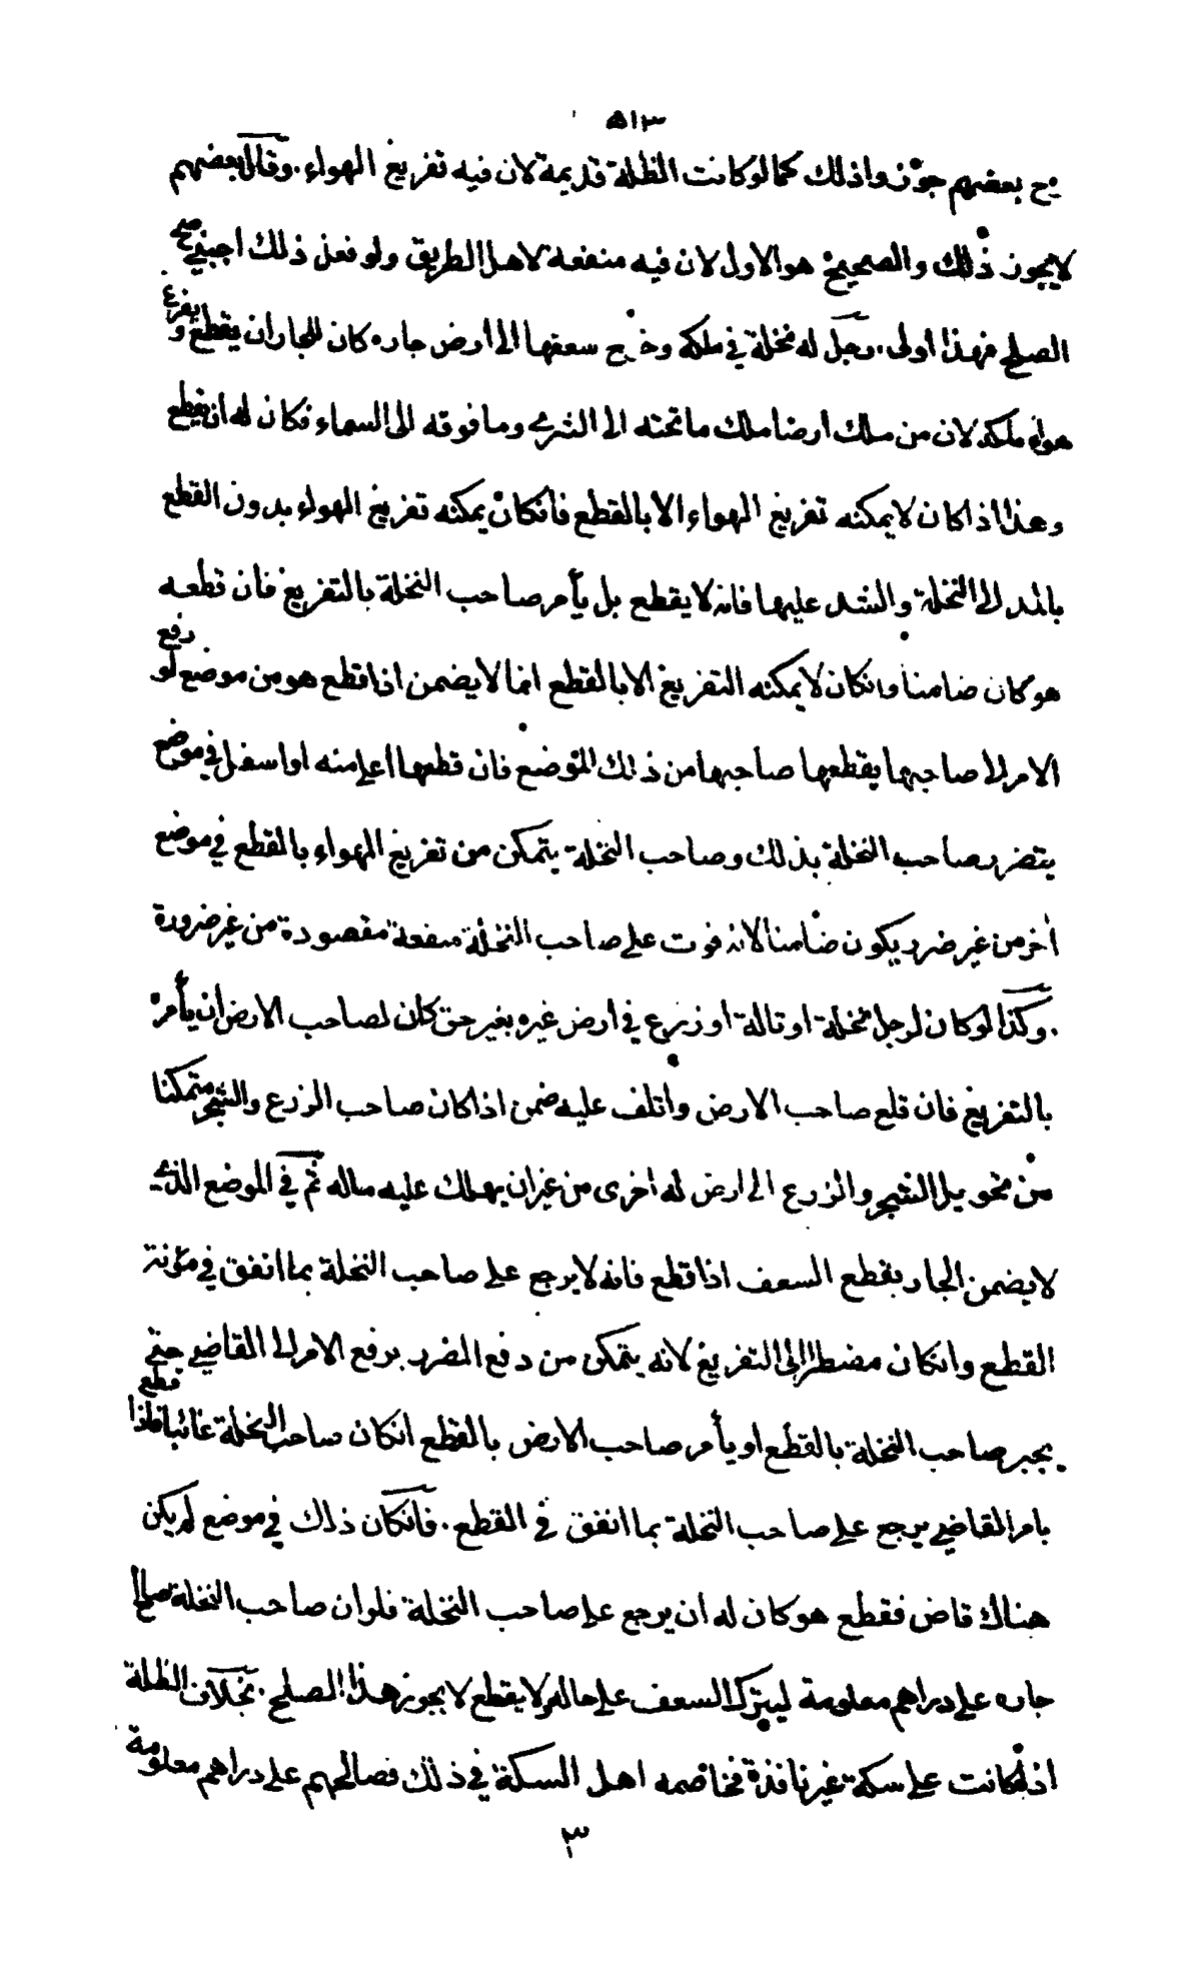 ٥١٣
يح بعضهم جوّزوا ذلك كما لو كانت الظلة قديمة لان فيه تفريغ الهواء. وقال بعضهم
لا يجوز ذلك والصحيح هو الاول لان فيه منفعة لاهل الطريق ولو فعل ذلك اجنبي صح
الصلح فهذا اولى. رجل له نخلة في ملكه وخرج سعفها الى ارض جاره كان للجار ان يقطع ويفرغ
هواء ملكه لان من ملك ارضا ملك ما تحته الى الثرى وما فوقه الى السماء فكان له ان يقطع
وهذا اذا كان لا يمكنه تفريغ الهواء الا بالقطع فانكان يمكنه تفريغ الهواء بدون القطع
بالمد الى النخلة والشد عليها فانه لا يقطع بل يأمر صاحب النخلة بالتفريغ فان قطعه
هو كان ضامنا وانكان لا يمكنه التفريغ الا بالقطع انما لا يضمن اذا قطع هو من موضع لو رفع
الامر الى صاحبها يقطعها صاحبها من ذلك الموضع فان قطعها اعلى منه او اسفل في موضع
يتضرر صاحب النخلة بذلك وصاحب النخلة يتمكن من تفريغ الهواء بالقطع في موضع
اخر من غير ضرر يكون ضامنا لانه فوت على صاحب النخلة منفعة مقصودة من غير ضرورة
. وكذا لو كان لرجل نخلة او تالة او زرع في ارض غيره بغير حق كان لصاحب الارض ان يأمره
بالتفريغ فان قلع صاحب الارض واتلف عليه ضمن اذا كان صاحب الزرع والشجر متمكنا
من تحويل الشجر والزرع الى ارض له اخرى من غير ان يهلك عليه ماله ثم في الموضع الذي
لا يضمن الجار بقطع السعف اذا قطع فانه لا يرجع على صاحب النخلة بما انفق في مؤنة
القطع وانكان مضطرا الى التفريغ لانه يتمكن من دفع الضرر برفع الامر الى القاضي حتى
يجبر صاحب النخلة بالقطع او يأمر صاحب الارض بالقطع انكان صاحب النخلة غائبا فاذا قطع
بامر القاضي يرجع على صاحب النخلة بما انفق في القطع. فانكان ذلك في موضع لم يكن
هناك قاض فقطع هو كان له ان يرجع على صاحب النخلة فلو ان صاحب النخلة صالح
جاره على دراهم معلومة ليترك السعف على حاله ولا يقطع لا يجوز هذا الصلح. بخلاف الظلة
اذا كانت على سكة غير نافذة فخاصمه اهل السكة في ذلك فصالحهم على دراهم معلومة
٣